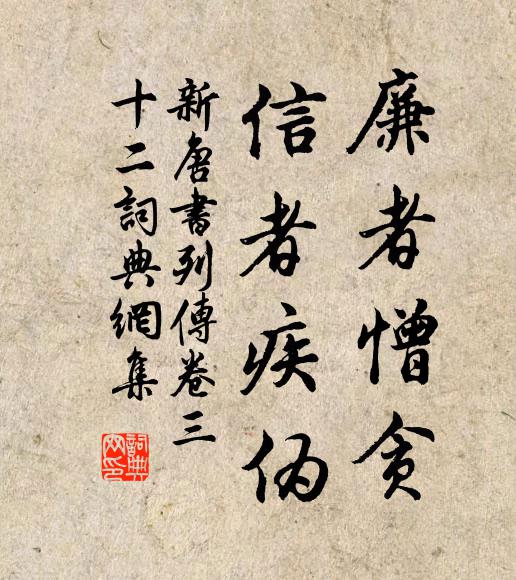 廉者憎贪
信者疾伪
新唐書列傳卷三
十二詞典網集
詞典网印